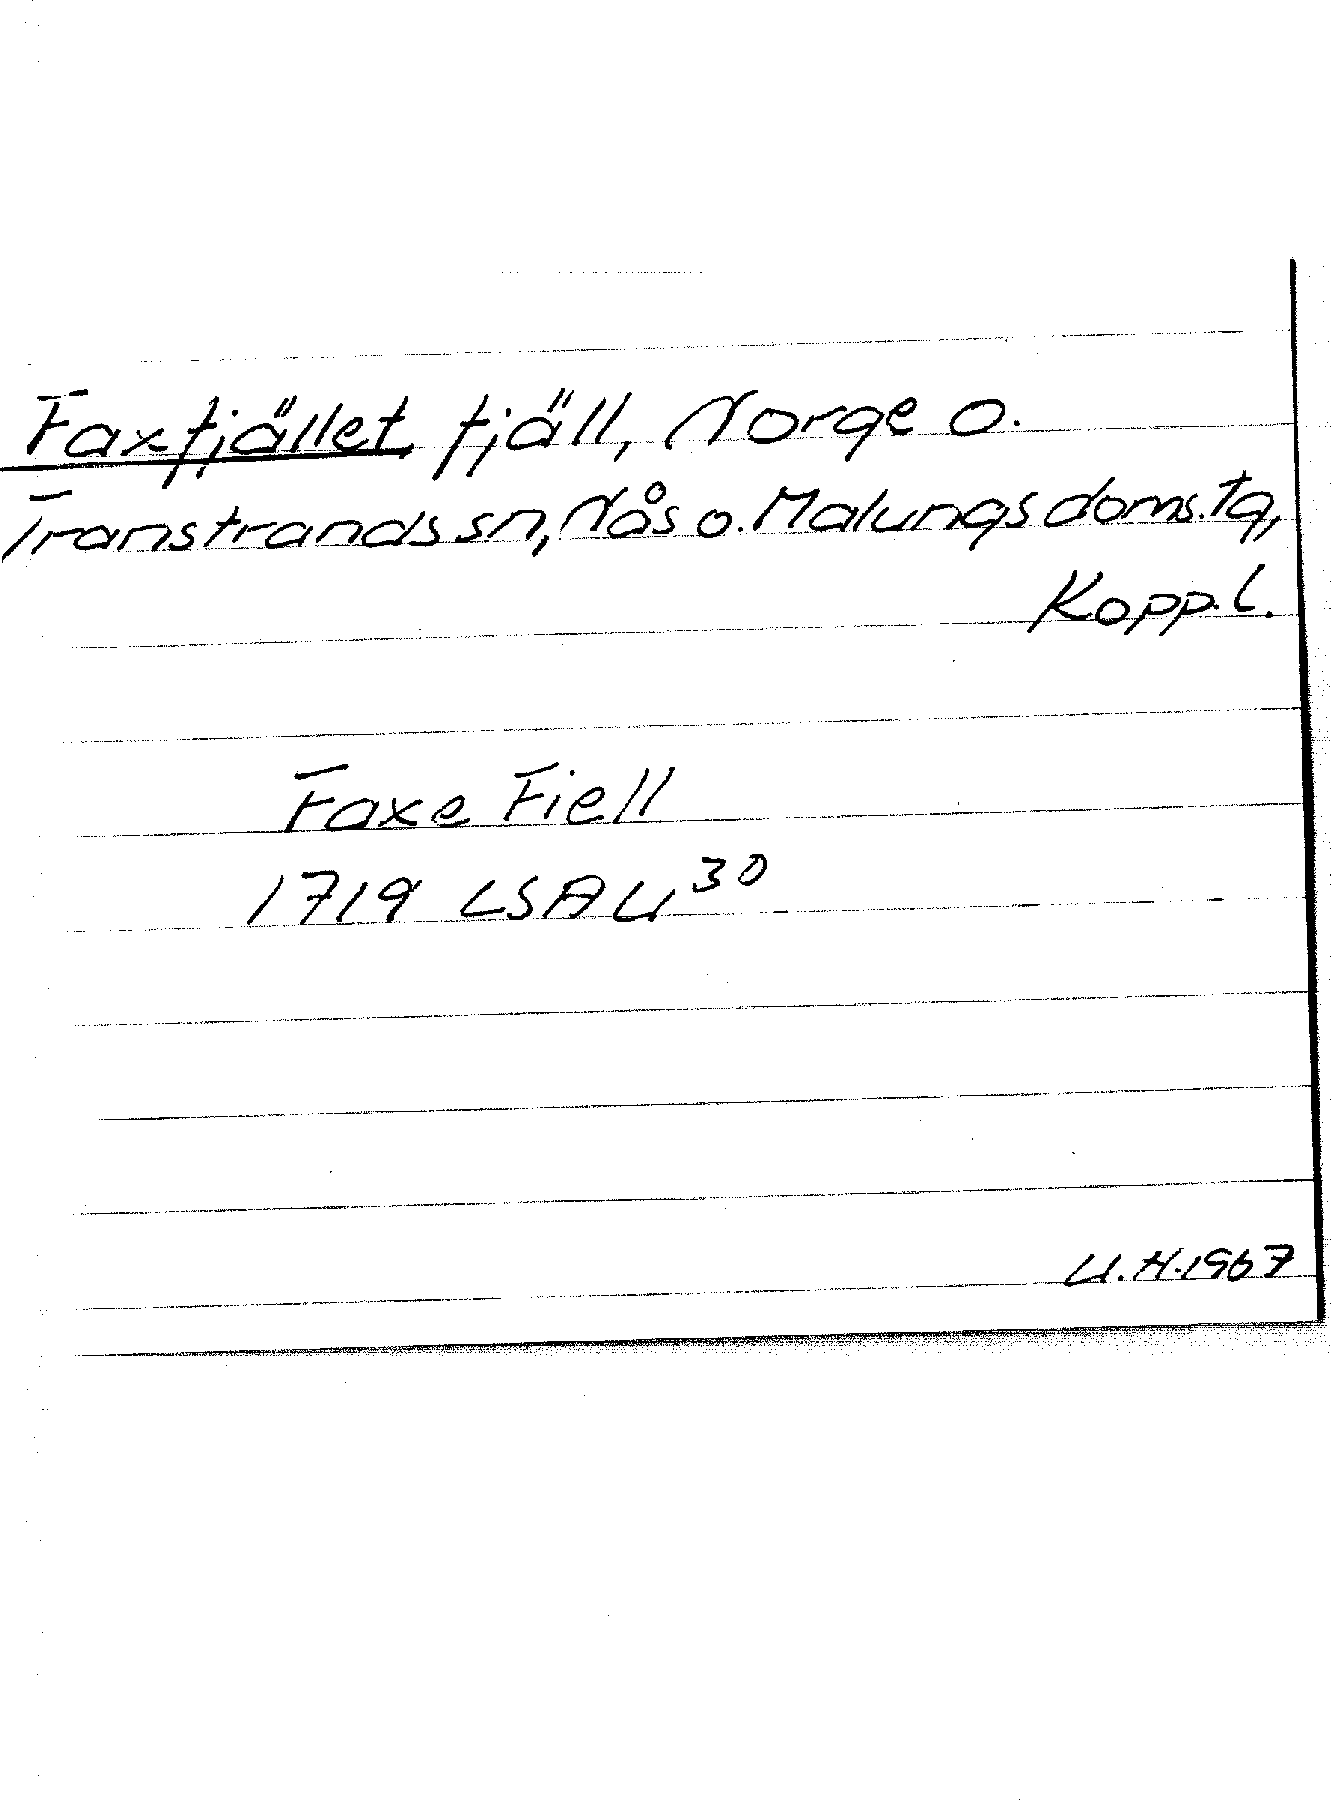 Faxfjället, fjäll, Norge o.
Transtrands sn, Nås o. Malungs doms.tg,
Kopp.l.
Faxe Fiell
1719 LSA U³⁰
U.H. 1967